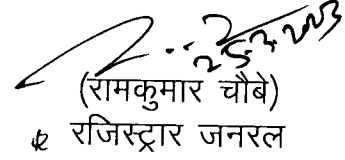 25.2.2023
(रामकुमार चौबे)
रजिस्ट्रार जनरल